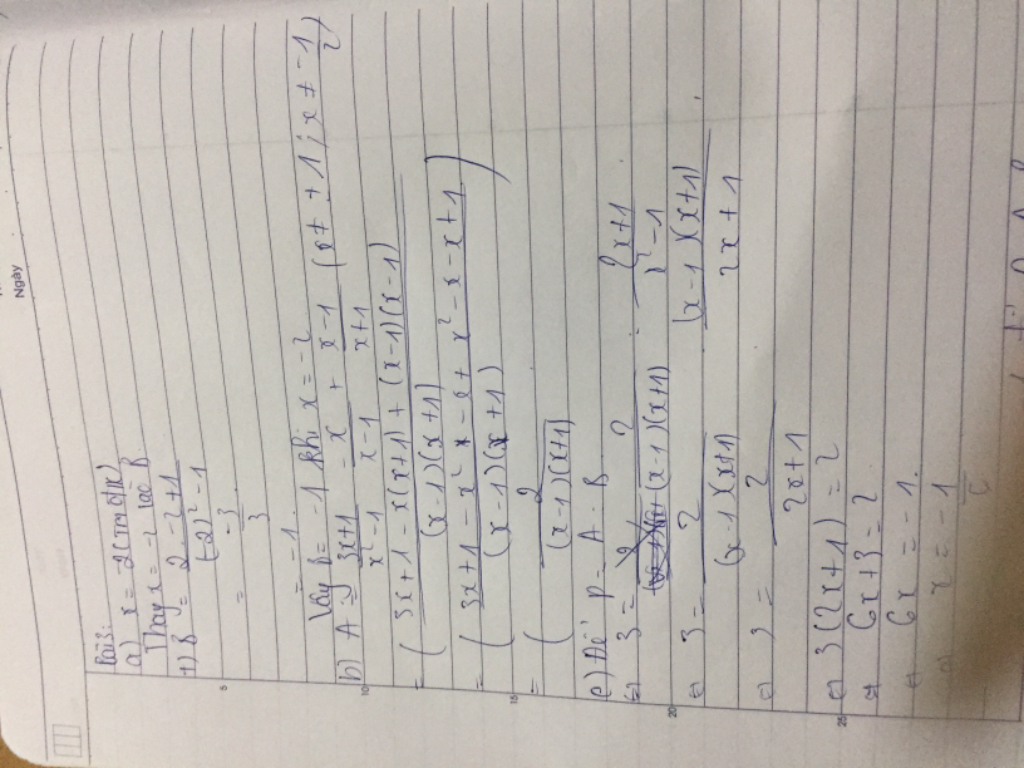 Ngày
Bài 3:
a) x = -2 (tmđk)
Thay x = -2 vào B
+) B = 2.-2+1 / (-2)² - 1
= -3 / 3
= -1
Vậy B = -1 khi x = -2
b) A = 3x+1 / x²-1 - x / x-1 + x-1 / x+1 (x ≠ ±1; x ≠ -1/2)
= ( 3x+1 - x(x+1) + (x-1)(x-1) / (x-1)(x+1)
= ( 3x+1 - x² - x + x² - x - x + 1 / (x-1)(x+1) )
= ( 2 / (x-1)(x+1)
c) Để P = A : B
⇔ 3 = 2 / (x-1)(x+1) : 2x+1 / x²-1
⇔ 3 = 2 / (x-1)(x+1) . (x-1)(x+1) / 2x+1
⇔ 3 = 2 / 2x+1
⇔ 3(2x+1) = 2
⇔ 6x+3 = 2
⇔ 6x = -1
⇔ x = -1 / 6
5
10
15
20
25